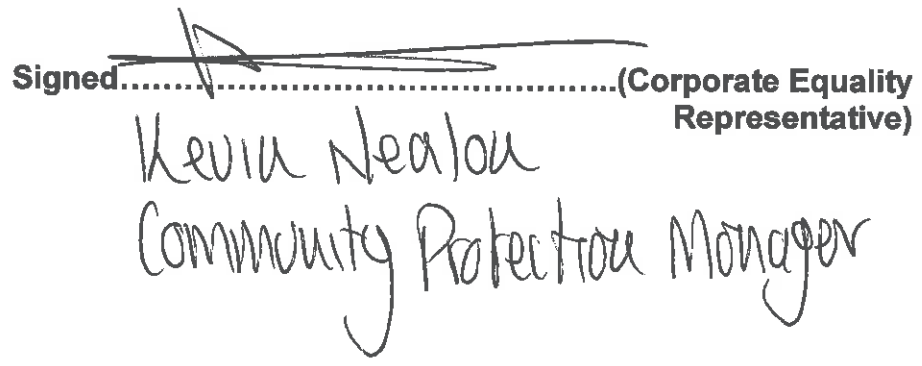 Signed..........................................(Corporate Equality
Representative)
Kevin Nealon
Community Protection Manager